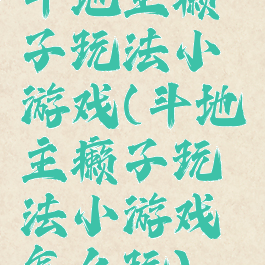 斗地主癞
子玩法小
游戏(斗地
主癞子玩
法小游戏
怎么玩)